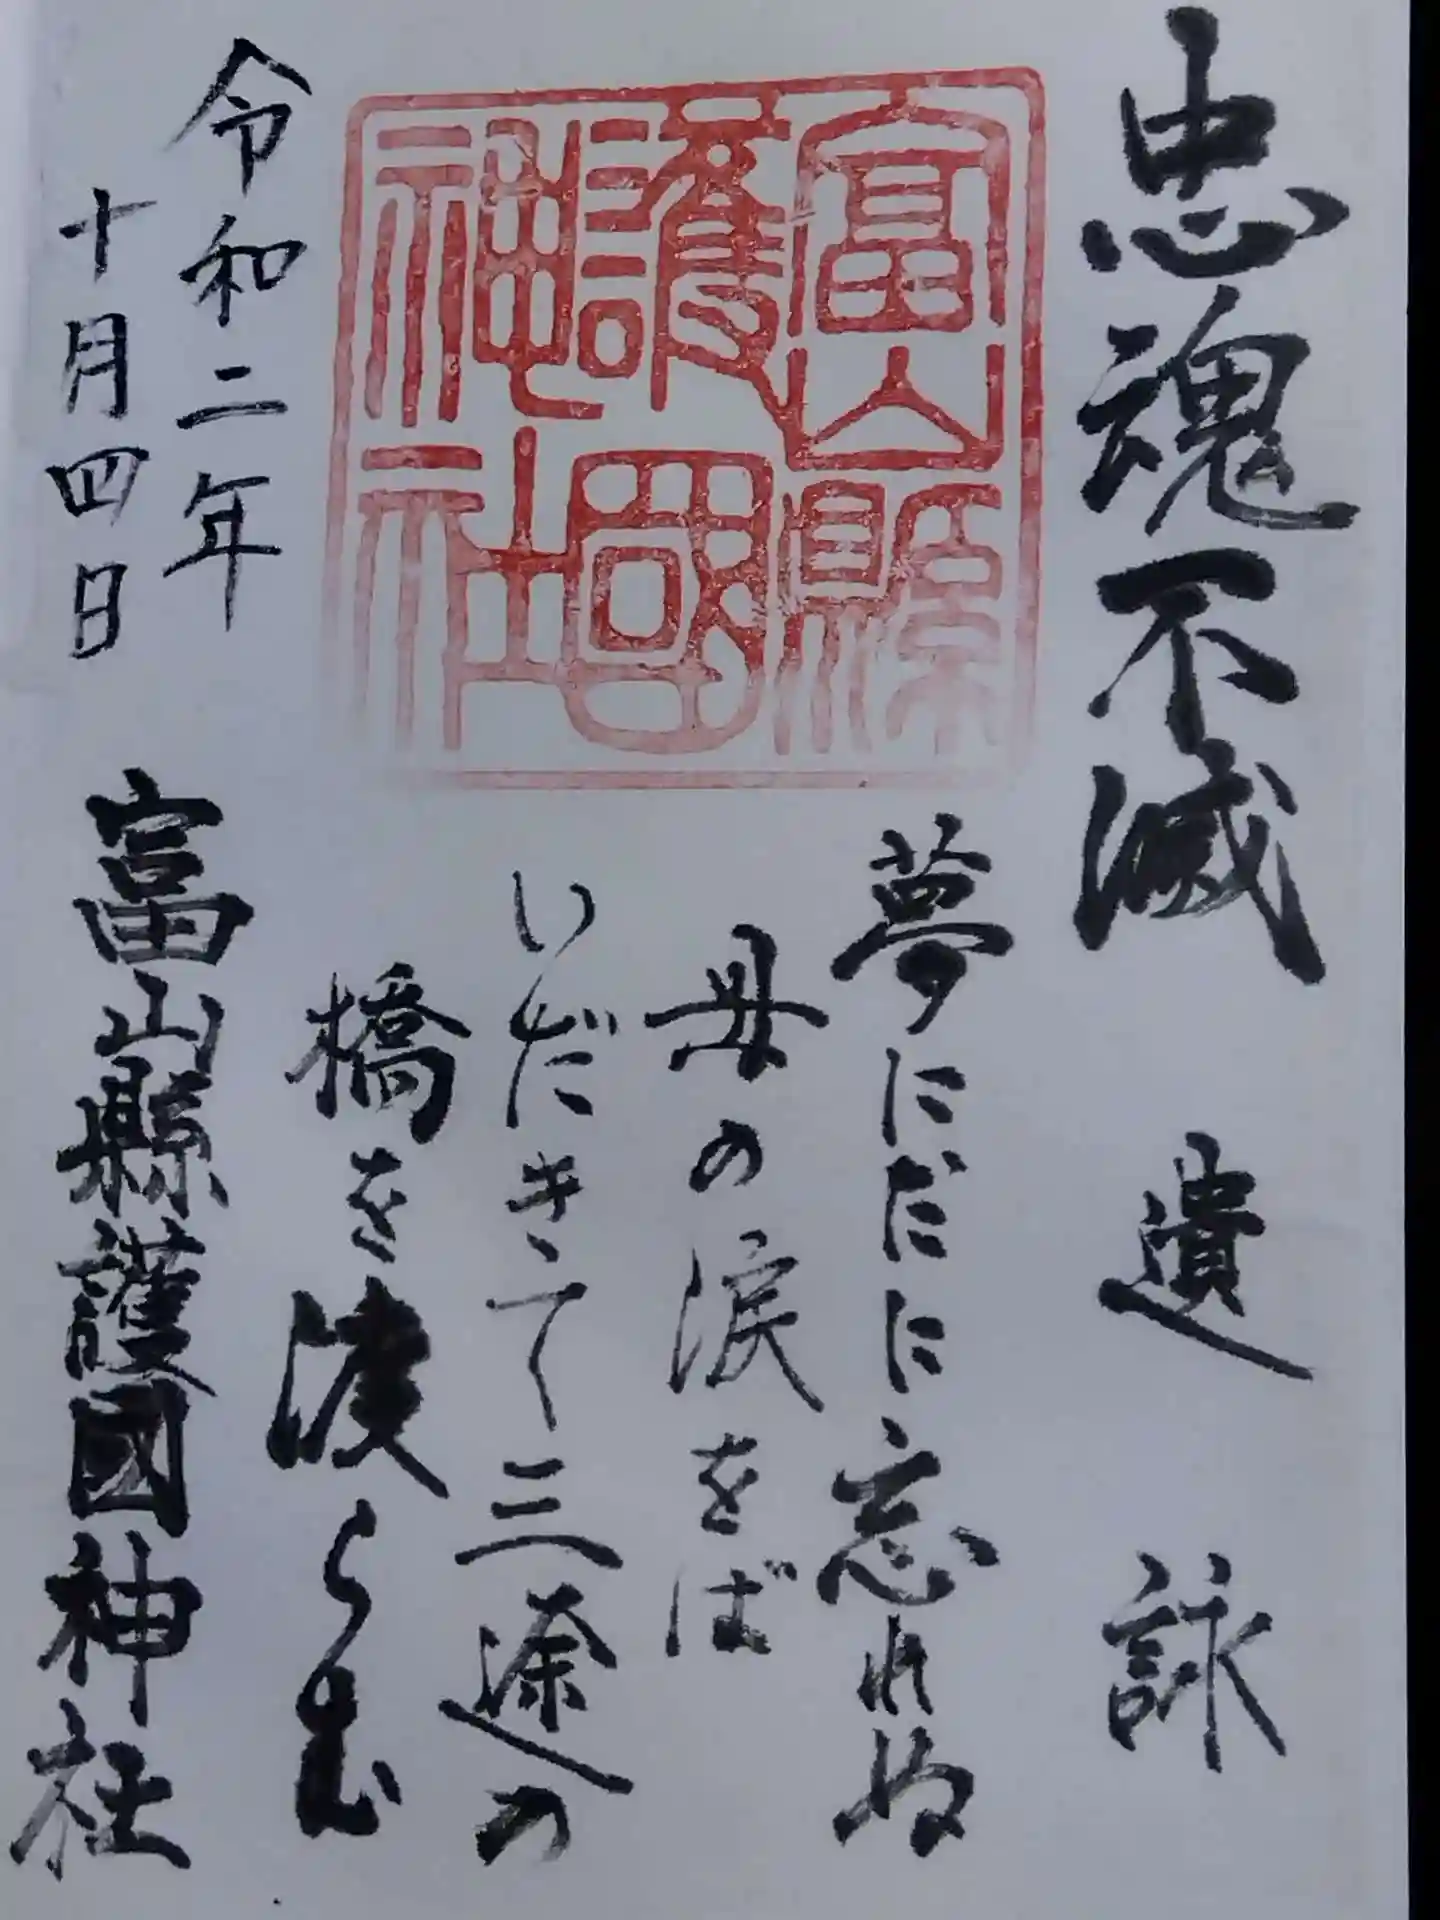 忠魂不滅 遺詠
富山縣
護國
神社
夢にだに忘れぬ
母の涙をば
いだきて三途の
橋を渡らむ
令和二年
十月四日
富山縣護國神社